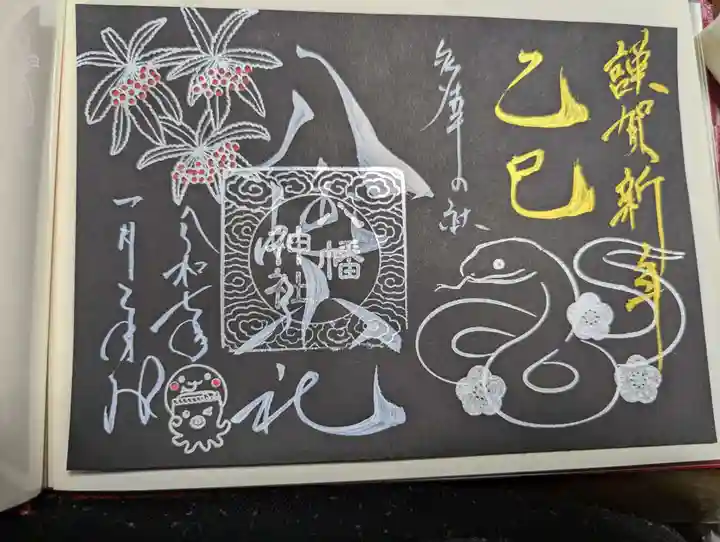 謹賀新年
乙巳
庫の社
八幡神社
八幡
神社
令和七年
一月 日